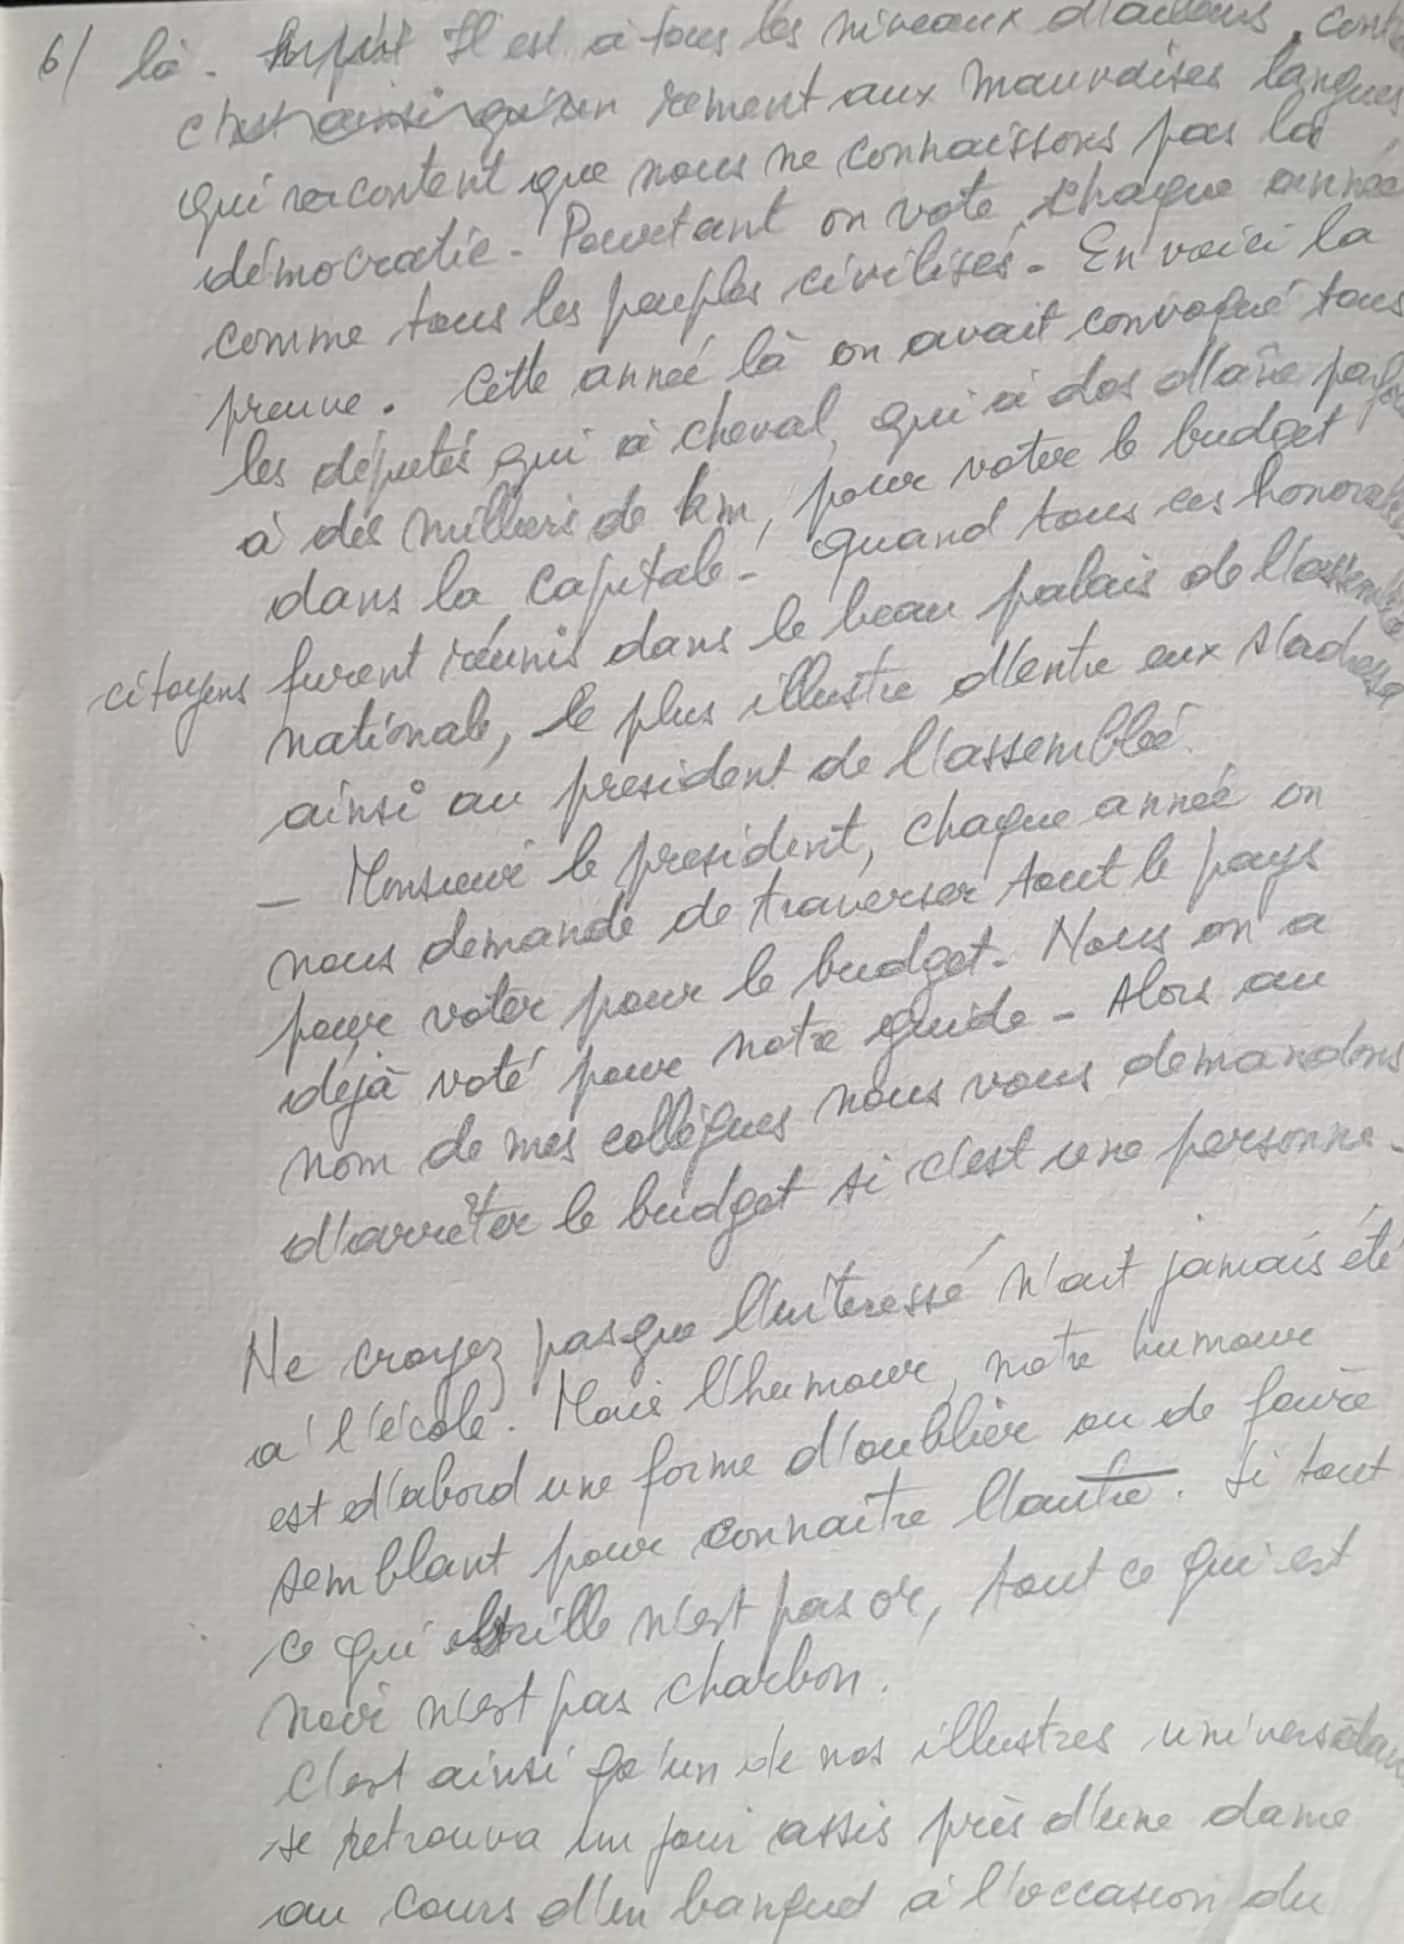 6/ là. Il est à tous les niveaux d'ailleurs, contrai
rement aux mauvaises langues
qui racontent que nous ne connaissons pas la
démocratie - Pourtant on vote chaque année
comme tous les peuples civilisés - En voici la
preuve. Cette année là on avait convoqué tous
les députés qui à cheval, qui à dos d'âne parfois
à des milliers de km, pour voter le budget
dans la capitale - Quand tous ces honorables
citoyens furent réunis dans le beau palais de l'assemblée
nationale, le plus illustre d'entre eux s'adressa
ainsi au president de l'assemblée.
— Monsieur le president, chaque année on
nous demande de traverser tout le pays
pour voter pour le budget. Nous on a
déjà voté pour notre guide - Alors au
nom de mes collègues nous vous demandons
d'arrêter le budget si c'est une personne -
Ne croyez pas que l'interessé n'ait jamais été
a l'école. Mais l'humour, notre humour
est d'abord une forme d'oublier ou de faire
semblant pour connaître l'autre. Si tout
ce qui brille n'est pas or, tout ce qui est
noir n'est pas charbon.
C'est ainsi qu'un de nos illustres universitaires
se retrouva un jour assis près d'une dame
au cours d'un banquet à l'occasion du